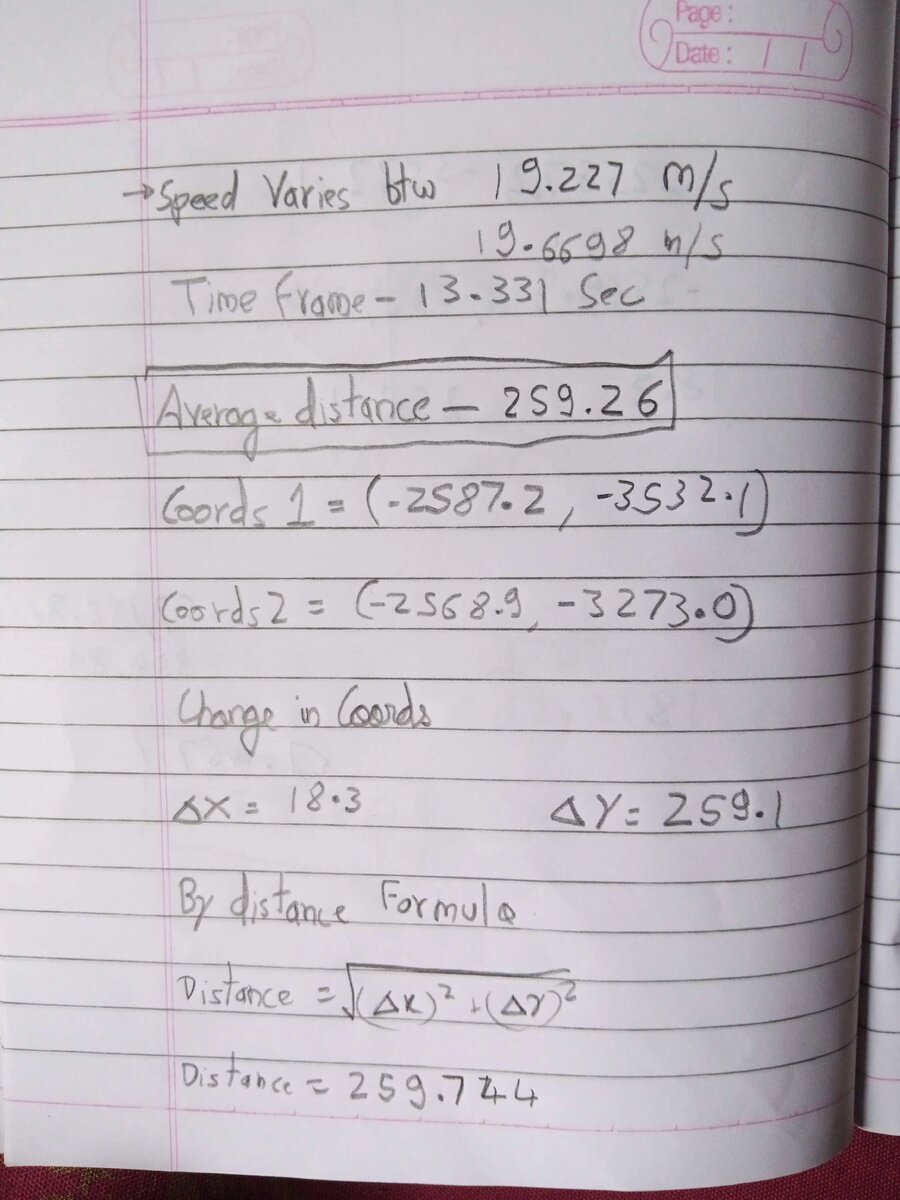 Page :
Date : / /
→ Speed Varies btw 19.227 m/s
19.6698 m/s
Time frame - 13.331 Sec
Average distance - 259.26
Coords 1 = (-2587.2, -3532.1)
Coords 2 = (-2568.9, -3273.0)
Change in Coords
ΔX = 18.3 ΔY = 259.1
By distance Formula
Distance = √(ΔX)² + (ΔY)²
Distance = 259.744